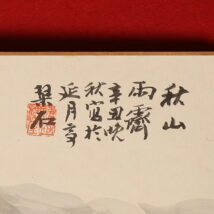 秋山
雨霽
辛丑晩
秋寫於
延月亭
翠石